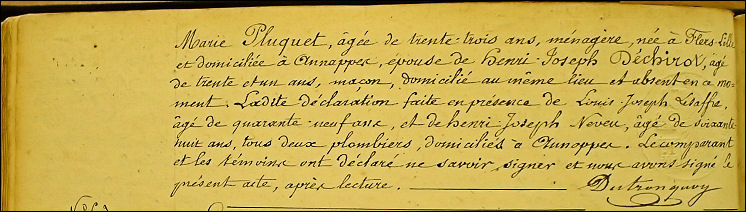 Marie Pluquet, âgée de trente-trois ans, ménagère, née à Flers-Lille
et domiciliée à Annappes, épouse de Henri Joseph Déchirot, âgé
de trente et un ans, maçon, domicilié au même lieu et absent en ce mo-
ment. Ladite déclaration faite en présence de Louis Joseph
âgé de quarante-neuf ans, et de henri Joseph Neveu, âgé de soixante
huit ans, tous deux plombiers, domiciliés à Annappes. Le comparant
et les témoins ont déclaré ne savoir signer et nous avons signé le
présent acte, après lecture.